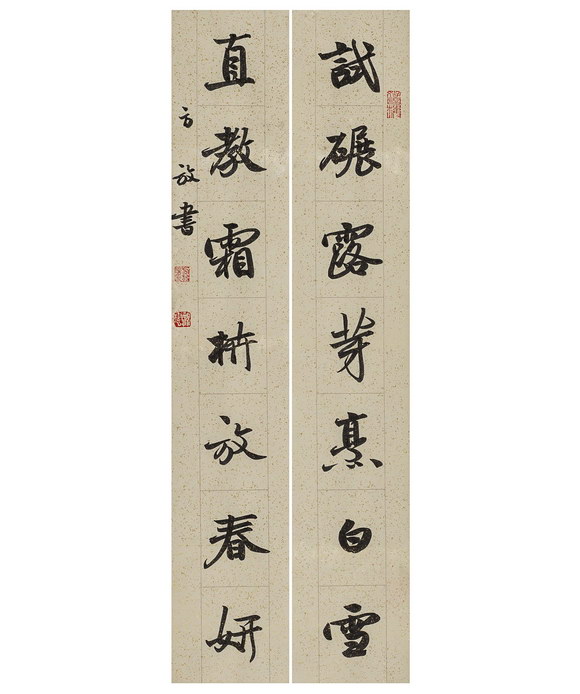 試碾露芽烹白雪
直教霜枿放春妍
方放書